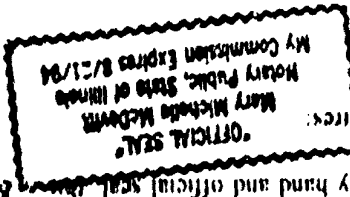 y hand and official seal
"OFFICIAL SEAL"
Mary Michelle McDevitt
Notary Public, State of Illinois
My Commission Expires 8/21/94